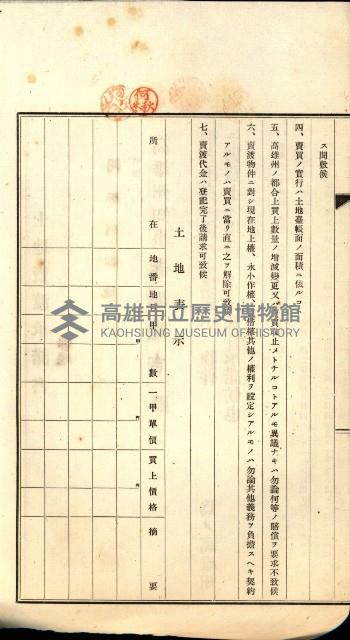 ス間敷候
四、賣買ノ實行ハ土地臺帳面ノ面積ニ依ルコ
五、高雄州ノ都合上買上數量ノ增減變更又ハ買取止メトナルコトアルモ異議ナキハ勿論何等ノ賠償ヲ要求不致候
六、賣渡物件ニ對シ現在地上權、永小作權、其他ノ權利ヲ設定シアルモノハ勿論其他義務ヲ負擔スヘキ契約
アルモノハ賣買ニ當リ直ニ之ヲ解除可致
七、賣渡代金ハ登記完了後請求可致候
土地表示
所在 地番 地 甲數 一甲單價 買上價格 摘要
高雄市立歷史博物館
KAOHSIUNG MUSEUM OF HISTORY